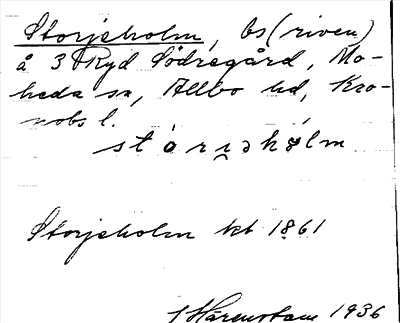 Storjeholm, bs (riven)
å 3 Ryd Södregård, Mo-
heda sn, Allbo hd, Kro-
nobs l.
stòrjəhólm
Storjeholm kt 1861
Härenstam 1936